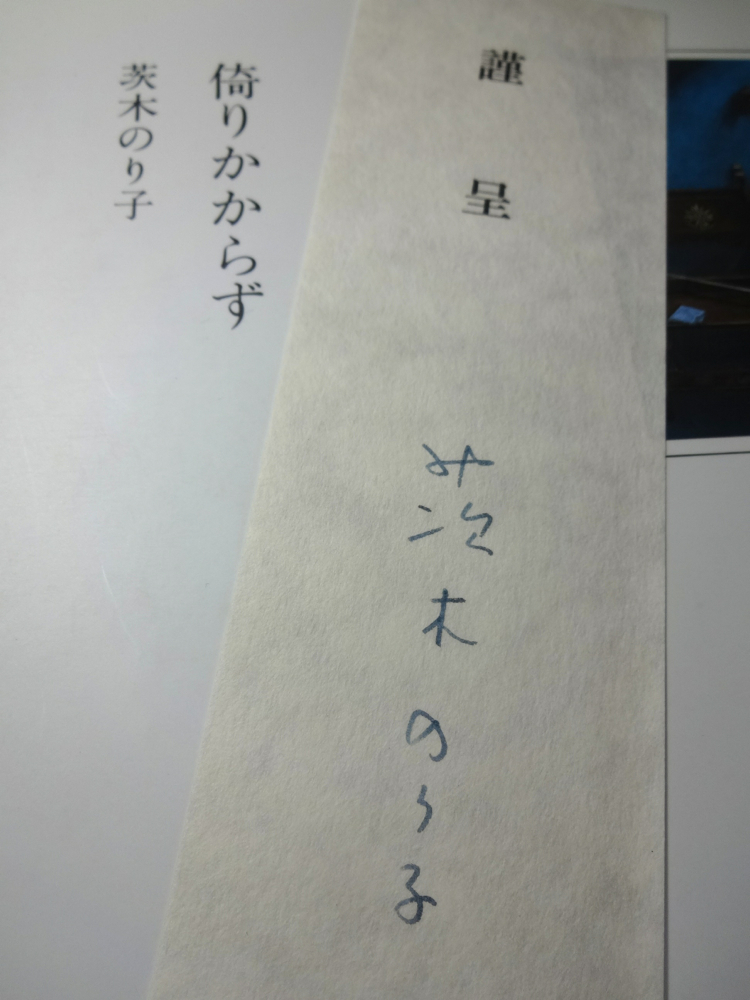 謹呈
茨木のり子
倚りかからず
茨木のり子